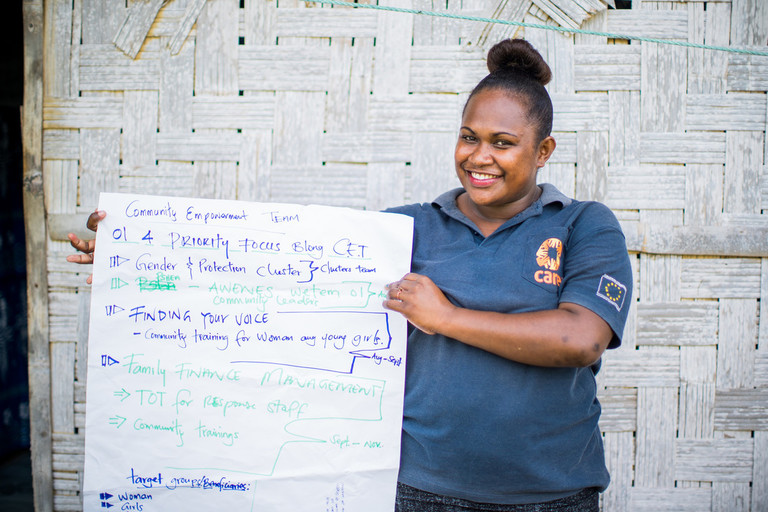 Community Empowerment TEAM
Ol 4 PRIORITY FOCUS Blong C.E.T
Gender & Protection Cluster } Clusters team
Been
- AWENES wetem ol
Community leaders
FINDING YOUR VOICE
- Community training for woman any young girls.
Aug - Sept
Family FINANCE MANAGEMENT
⇒ TOT for Response staff
⇒ Community trainings
Sept - Nov.
target groups/Beneficiaries:
woman
Girls
care